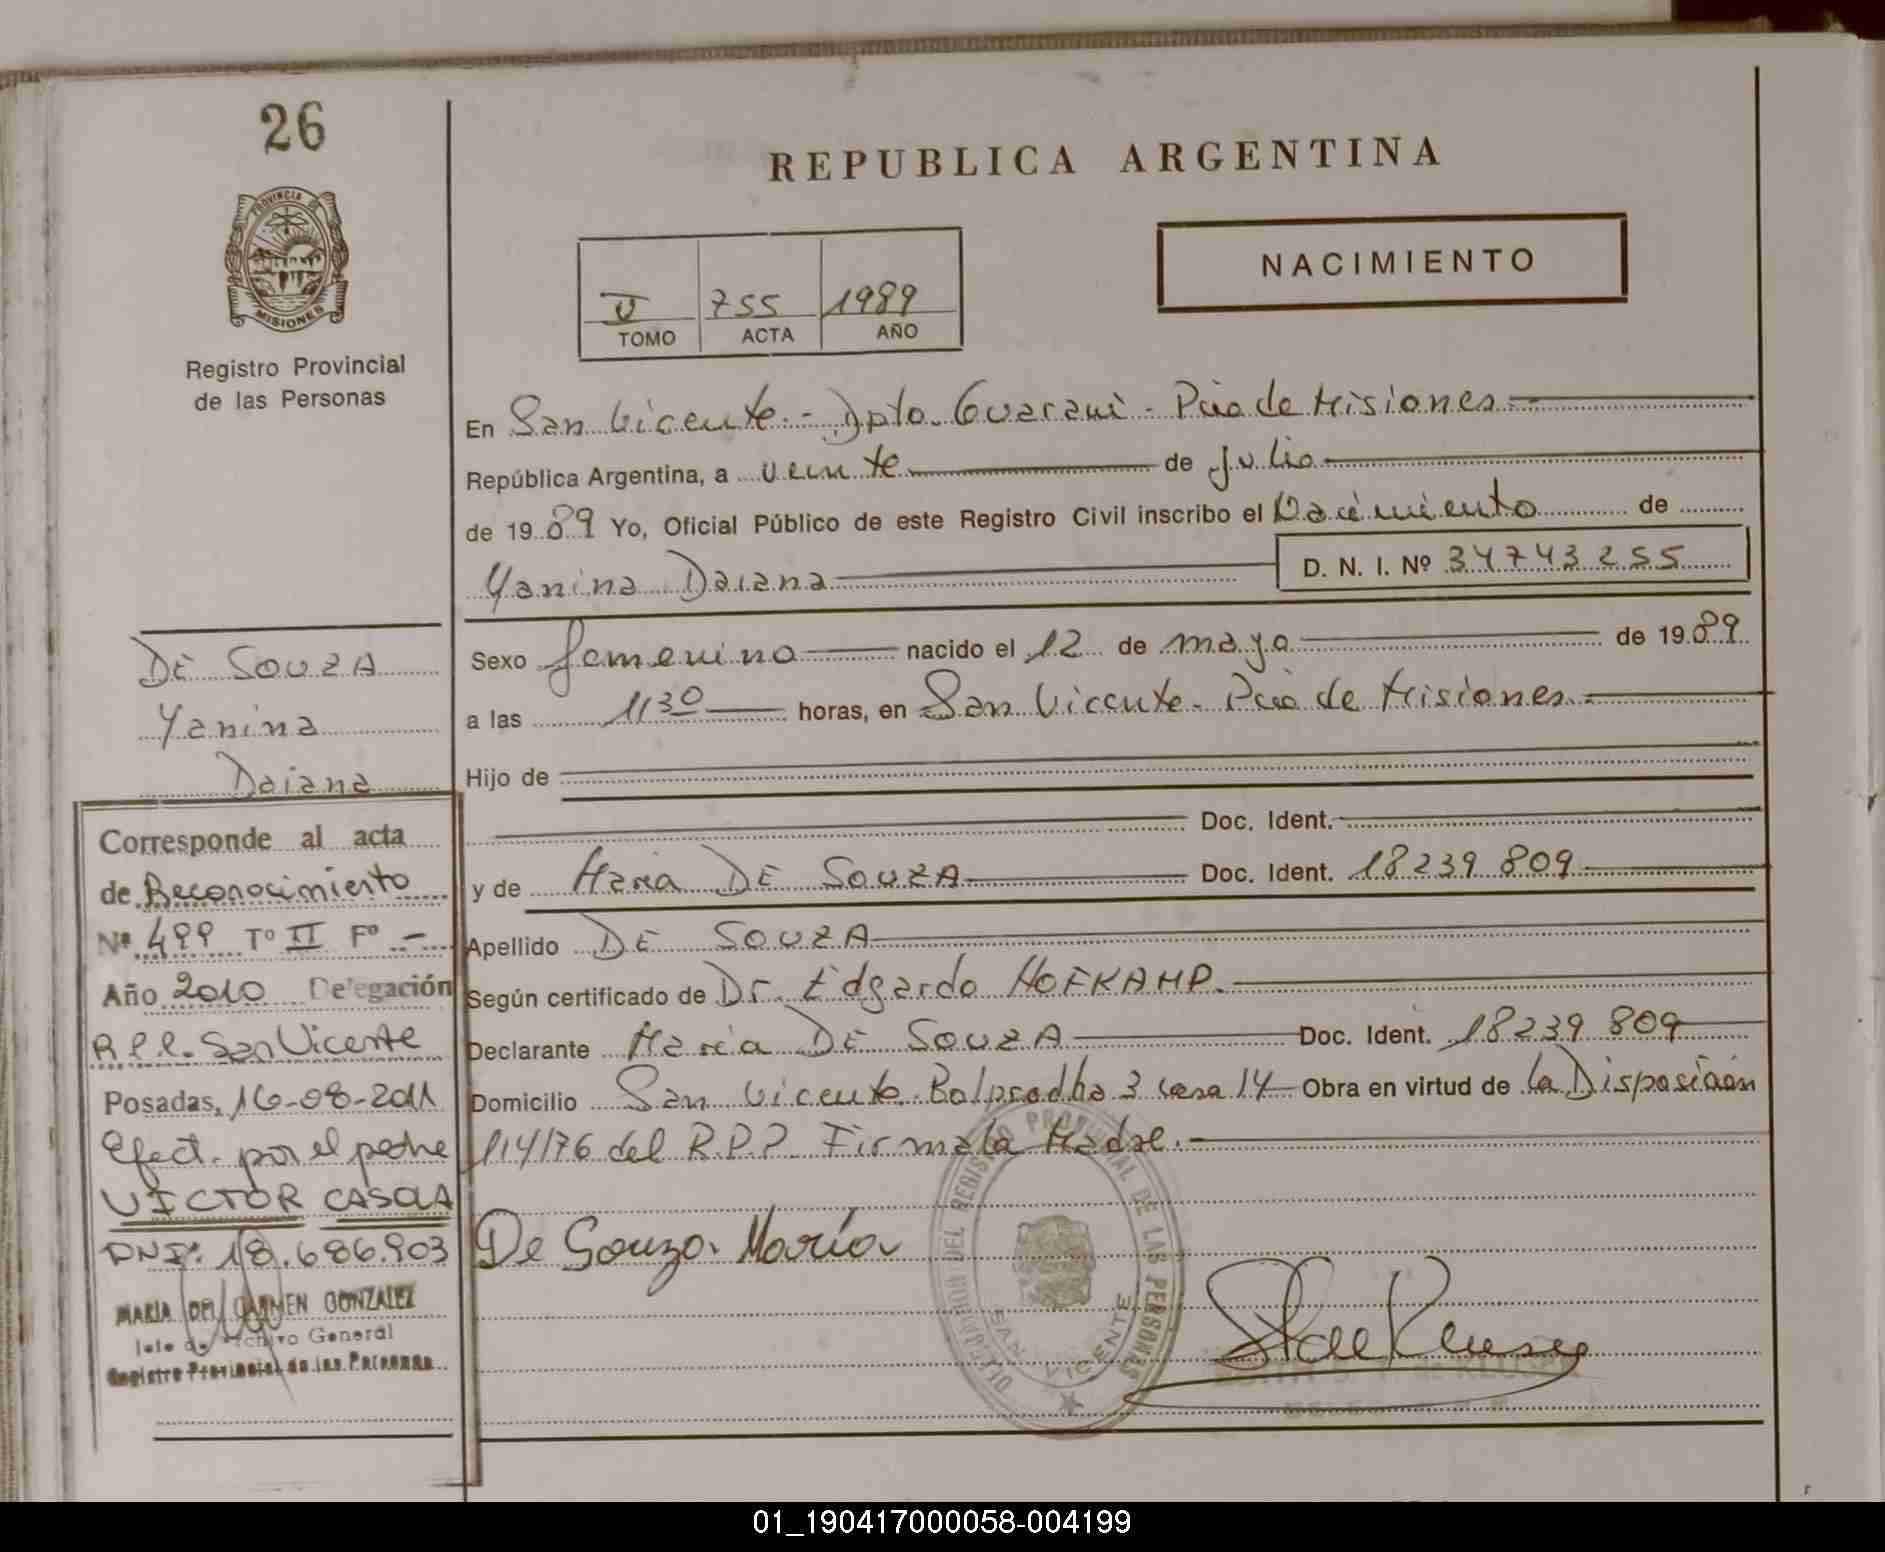 26
REPUBLICA ARGENTINA
PROVINCIA DE
MISIONES
Registro Provincial
de las Personas
NACIMIENTO
V 755 1989
TOMO ACTA AÑO
En San Vicente.- Dpto. Guarani - Pcia de Misiones
República Argentina, a veinte de Julio
de 1989 Yo, Oficial Público de este Registro Civil inscribo el Nacimiento de
Yanina Daiana D. N. I. Nº 34743255
Sexo femenino nacido el 12 de mayo de 1989
a las 1130 horas, en San Vicente - Pcia de Misiones.
Hijo de
Doc. Ident.
y de Maria DE SOUZA Doc. Ident. 18239809
Apellido DE SOUZA
Según certificado de Dr. Edgardo HOFKAMP.
Declarante Maria DE SOUZA Doc. Ident. 18239809
Domicilio San Vicente. 3 casa 14 Obra en virtud de la Disposición
114/76 del R.P.P. Firma la Madre.
De Souza María
DELEGACION DEL REGISTRO PROVINCIAL DE LAS PERSONAS
SAN VICENTE
DE SOUZA
Yanina
Daiana
Corresponde al acta
de Reconocimiento
Nº 499 Tº II Fº -
Año 2010 Delegación
R.P.P. San Vicente
Posadas, 16-08-2011
Efect. por el padre
VICTOR CASOLA
DNI: 18.686.903
MARIA DEL CARMEN GONZALEZ
Jefe de Archivo General
Registro Provincial de las Personas
01_190417000058-004199